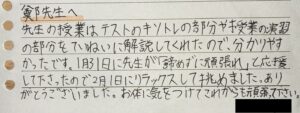 鄭先生へ
先生の授業はテストのキソトレの部分や授業の演習
の部分をていねいに解説してくれたので、分かりやす
かったです。1月31日に先生が「諦めずに頑張れ」と応援
して下さったので2月1日にリラックスして挑めました。あり
がとうございました。お体に気をつけてこれからも頑張って下さい。